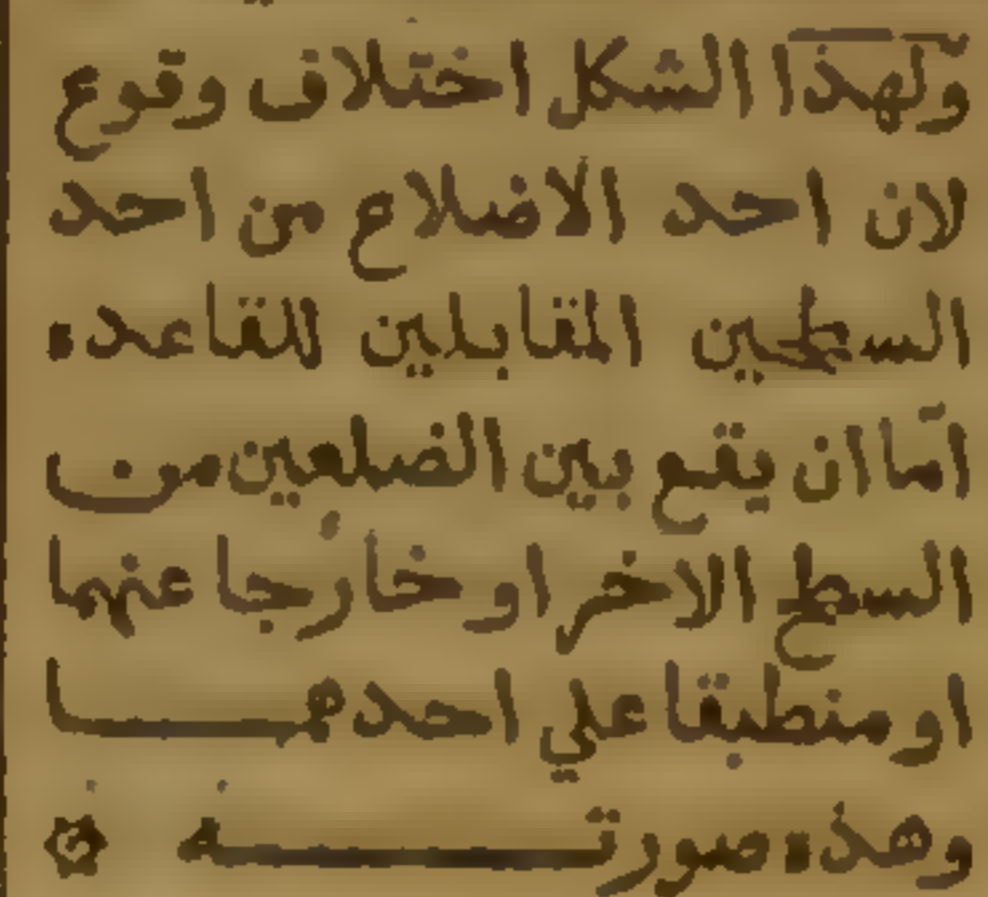 ولهذا الشكل اختلاف وقوع
لان احد الاضلاع من احد
السطحين المتقابلين للقاعده
امّا ان يقع بين الضلعين من
السطح الاخر او خارجا عنهما
او منطبقا علي احدهما
وهذه صورته